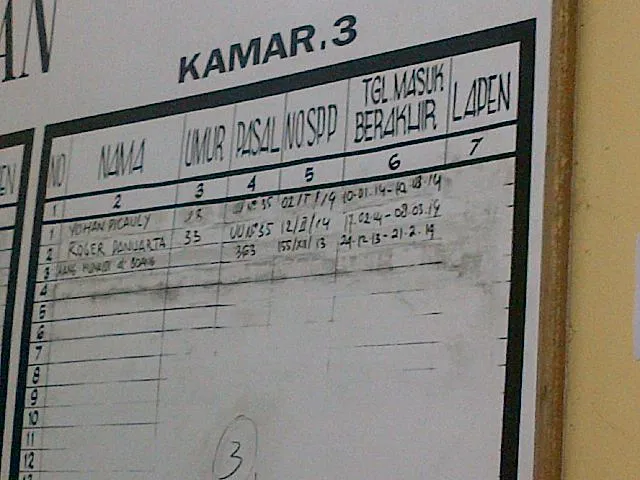 AN
KAMAR.3
EN
NO NAMA UMUR PASAL NO SPP TGL MASUK BERAKHIR LAPEN
1 2 3 4 5 6 7
1 YOHAN PICAULY 23 NO 35 02/I/14 10-01-14-10.03.14
2 ROGER DANUARTA 33 UU NO 35 12/II/14 17.02.14-08.03.14
3 363 155/XII/13 24-12-13-21-2-14
4
5
6
7
8
9
10
11
12
3